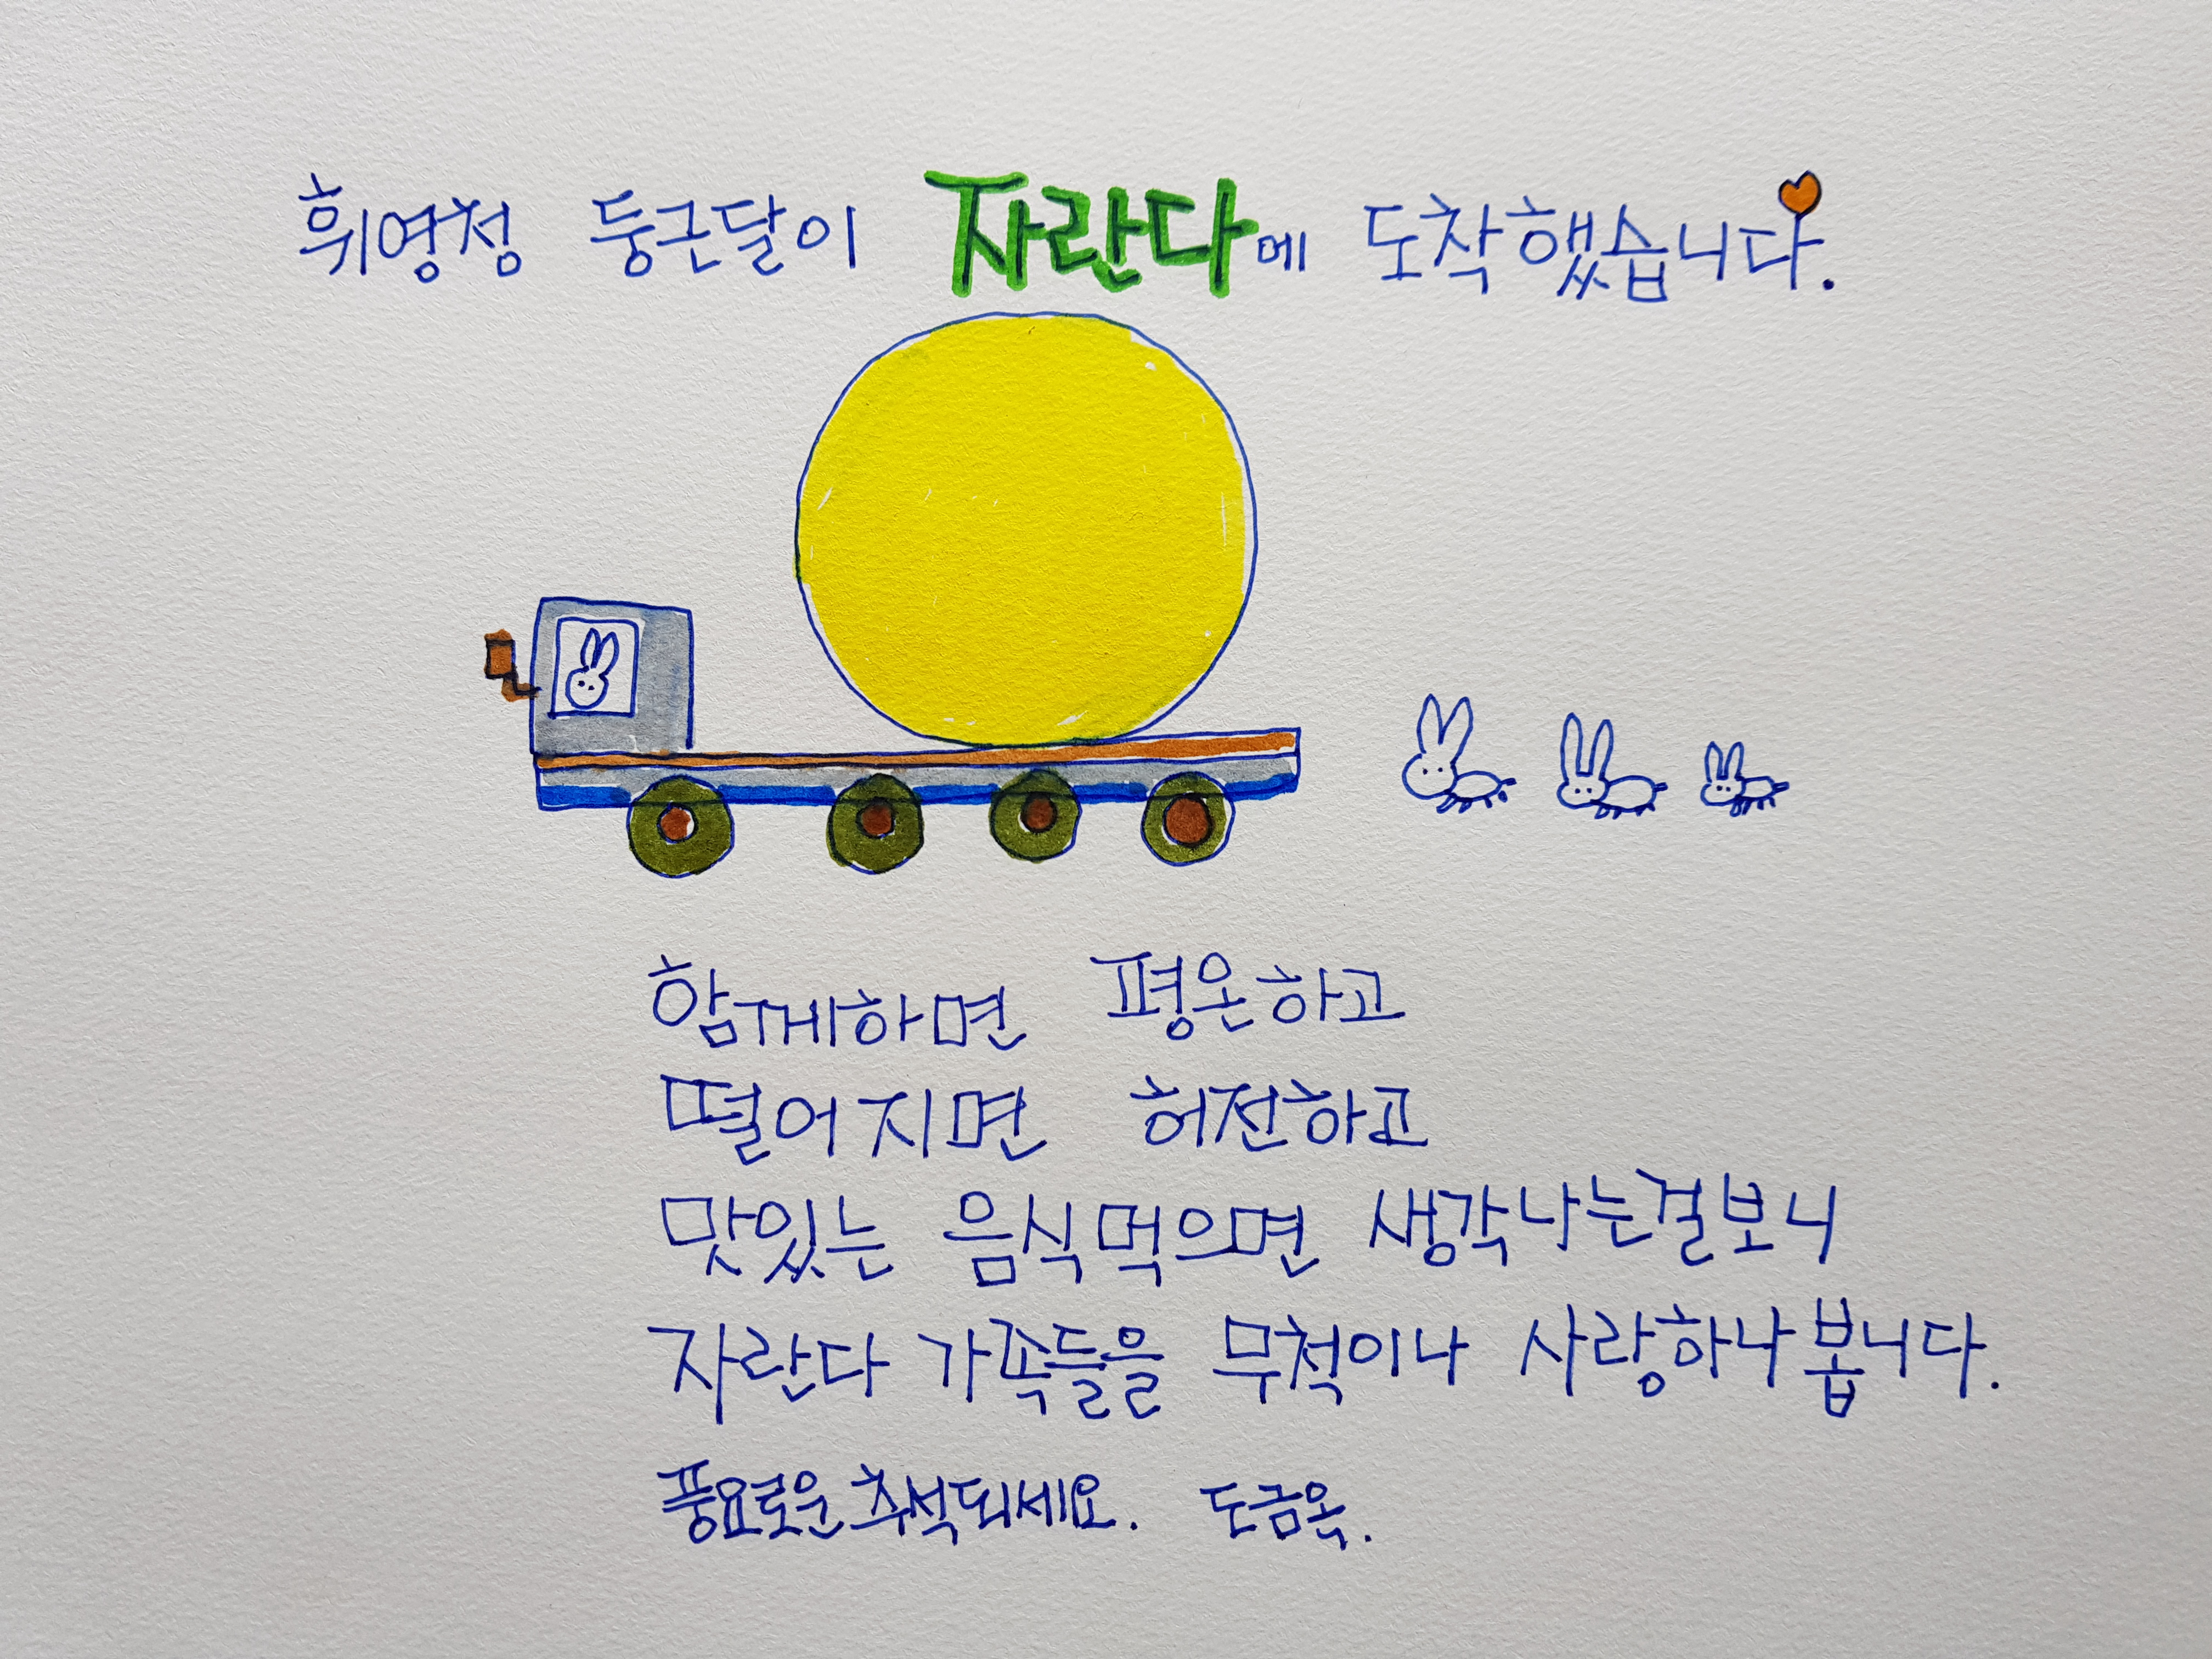 휘영청 둥근달이 자란다에 도착했습니다.
함께하면 평온하고
떨어지면 허전하고
맛있는 음식먹으면 생각나는걸보니
자란다 가족들을 무척이나 사랑하나봅니다.
풍요로운 추석되세요. 도금옥.